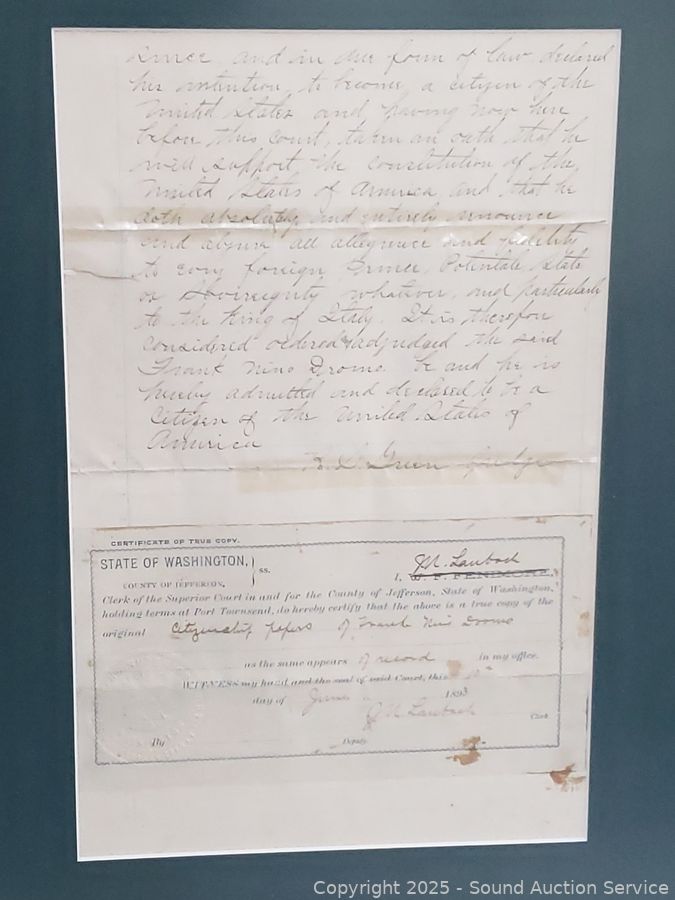 since and in due form of law, declared
his intention, to become a citizen of the
United States and, having now here
before this court, taken an oath that he
will support the constitution of the
United States of America, and that he
doth absolutely and entirely renounce
and abjure all allegiance and fidelity
to every foreign Prince, Potentate, State
or Sovereignty whatever, and particularly
to the King of Italy. It is, therefore
considered ordered & adjudged the said
Frank Nino Droms be and he is
hereby admitted and declared to be a
Citizen of the United States of
America
Green Judge
CERTIFICATE OF TRUE COPY.
STATE OF WASHINGTON, ss.
COUNTY OF JEFFERSON,
I, J.N. Laubach
Clerk of the Superior Court in and for the County of Jefferson, State of Washington,
holding terms at Port Townsend, do hereby certify that the above is a true copy of the
original Citizenship papers of Frank Nino Droms
as the same appears of record in my office.
WITNESS my hand and the seal of said Court, this
day of June 1893
J N Laubach Clerk
By Deputy
Copyright 2025 - Sound Auction Service